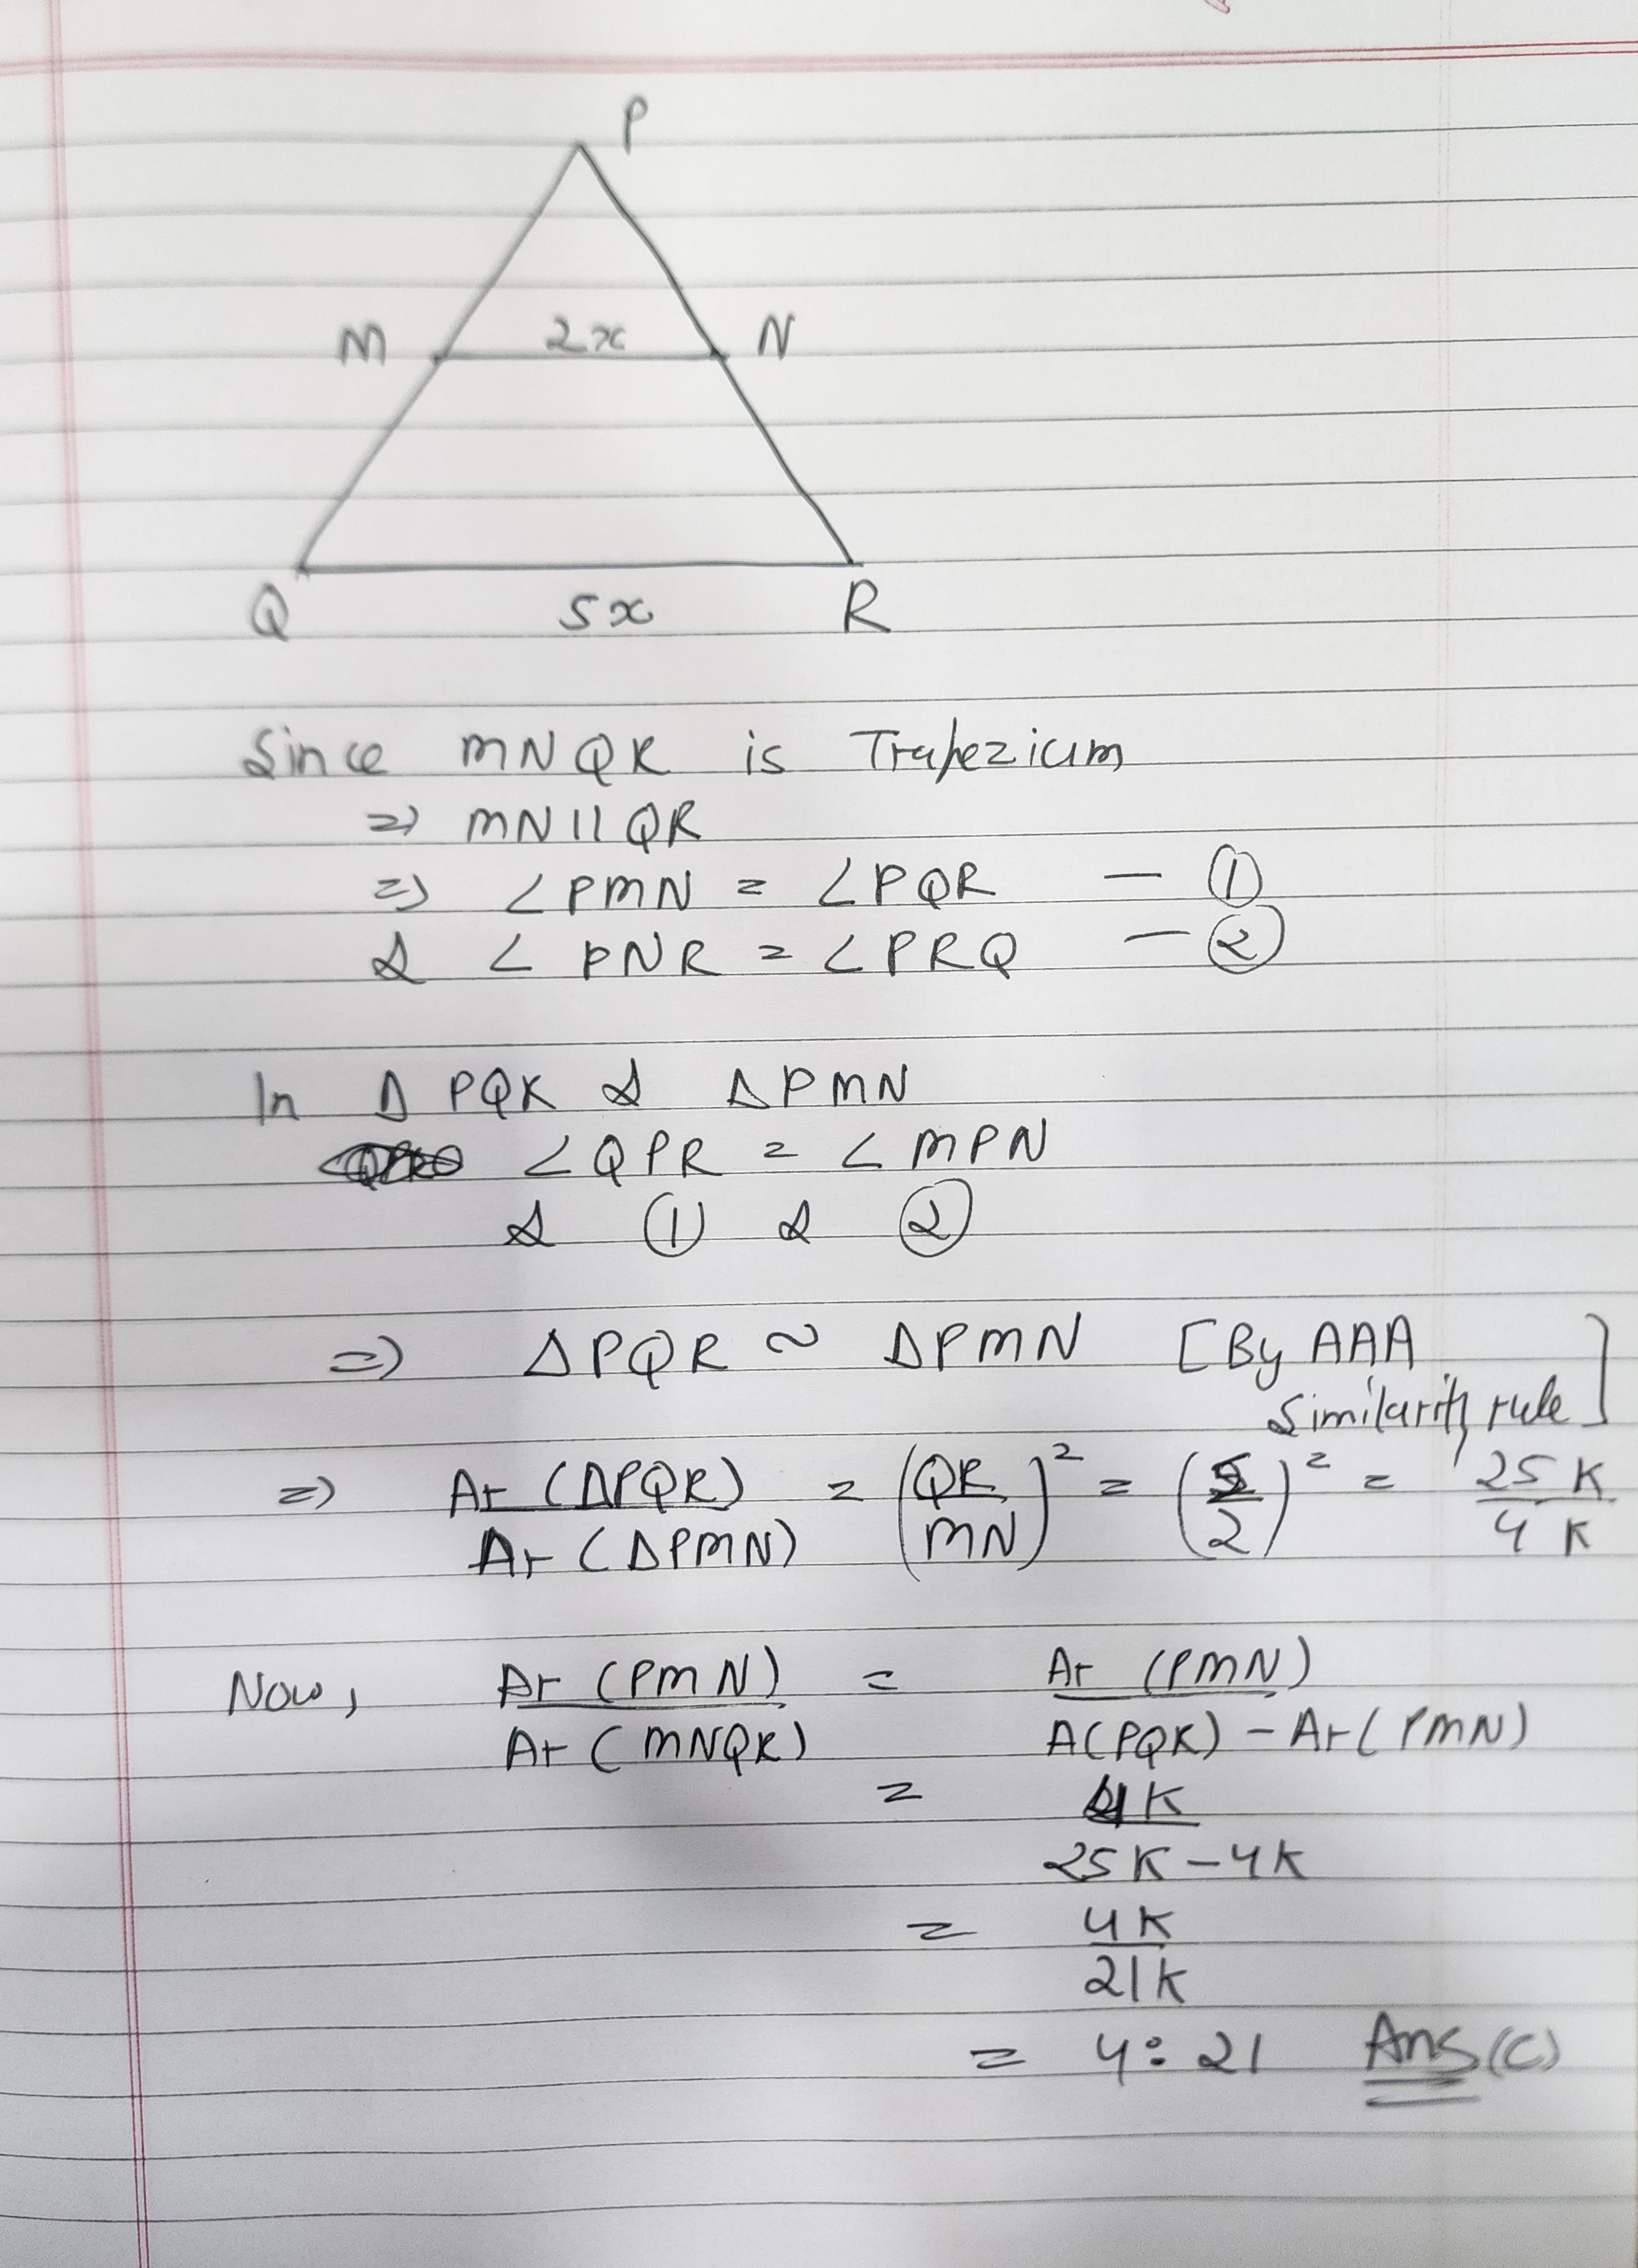 P
M 2x N
Q 5x R
Since MNQR is Trapezium
=> MN || QR
=> ∠PMN = ∠PQR — ①
& ∠PNR = ∠PRQ — ②
In Δ PQR & ΔPMN
∠QPR = ∠MPN
& ① & ②
=> ΔPQR ~ ΔPMN [By AAA
Similarity rule]
=> Ar (ΔPQR) / Ar (ΔPMN) = (QR / MN)² = (5 / 2)² = 25 K / 4 K
Now, Ar (PMN) / Ar (MNQR) = Ar (PMN) / A(PQR) - Ar (PMN)
= 4K / 25K - 4K
= 4K / 21K
= 4 : 21 Ans (C)